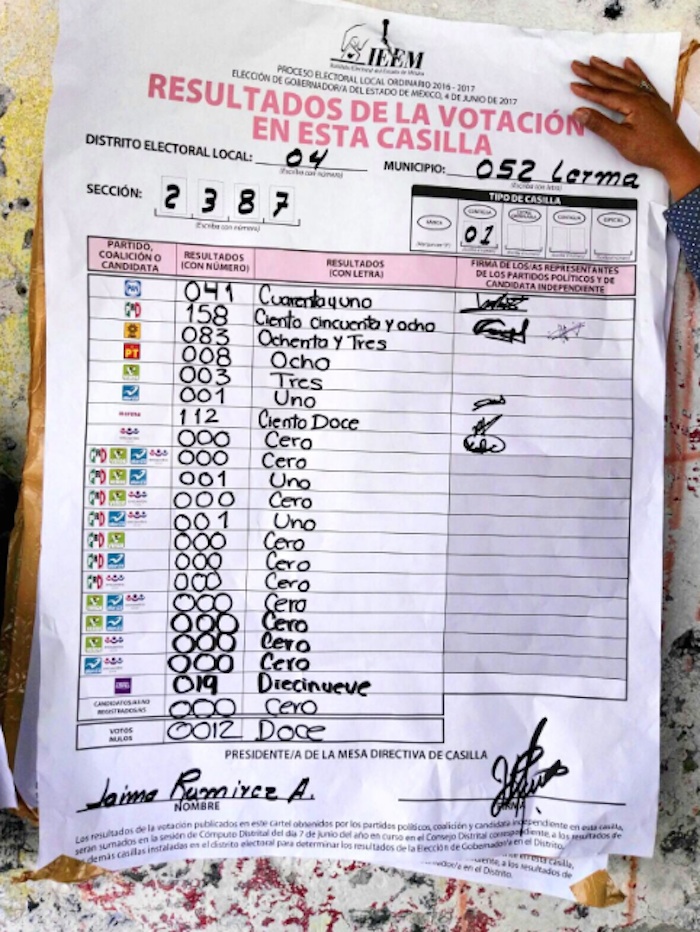 IEEM
Instituto Electoral del Estado de México
PROCESO ELECTORAL LOCAL ORDINARIO 2016 - 2017
ELECCIÓN DE GOBERNADOR/A DEL ESTADO DE MÉXICO, 4 DE JUNIO DE 2017
RESULTADOS DE LA VOTACIÓN
EN ESTA CASILLA
DISTRITO ELECTORAL LOCAL: 04 MUNICIPIO: 052 Lerma
(Escriba con número) (Escriba con letra)
SECCIÓN: 2 3 8 7
(Escriba con número)
TIPO DE CASILLA
BÁSICA CONTIGUA ESPECIAL
01
PARTIDO, COALICIÓN O CANDIDATA RESULTADOS (CON NÚMERO) RESULTADOS (CON LETRA) FIRMA DE LOS/AS REPRESENTANTES DE LOS PARTIDOS POLÍTICOS Y DE CANDIDATA INDEPENDIENTE
PAN 041 Cuarenta y uno
PRD 158 Ciento cincuenta y ocho
083 Ochenta y Tres
PT 008 Ocho
003 Tres
001 Uno
morena 112 Ciento Doce
000 Cero
000 Cero
001 Uno
000 Cero
001 Uno
000 Cero
000 Cero
000 Cero
000 Cero
000 Cero
000 Cero
000 Cero
019 Diecinueve
CANDIDATOS/AS NO REGISTRADOS/AS 000 Cero
VOTOS NULOS 0012 Doce
PRESIDENTE/A DE LA MESA DIRECTIVA DE CASILLA
Jaime Ramirez A.
NOMBRE FIRMA
Los resultados de la votación publicados en este cartel obtenidos por los partidos políticos, coalición y candidata independiente en esta casilla,
serán sumados en la sesión de Cómputo Distrital del día 7 de junio del año en curso en el Consejo Distrital correspondiente, a los resultados de
demás casillas instaladas en el distrito electoral para determinar los resultados de la Elección de Gobernador/a en el Distrito.